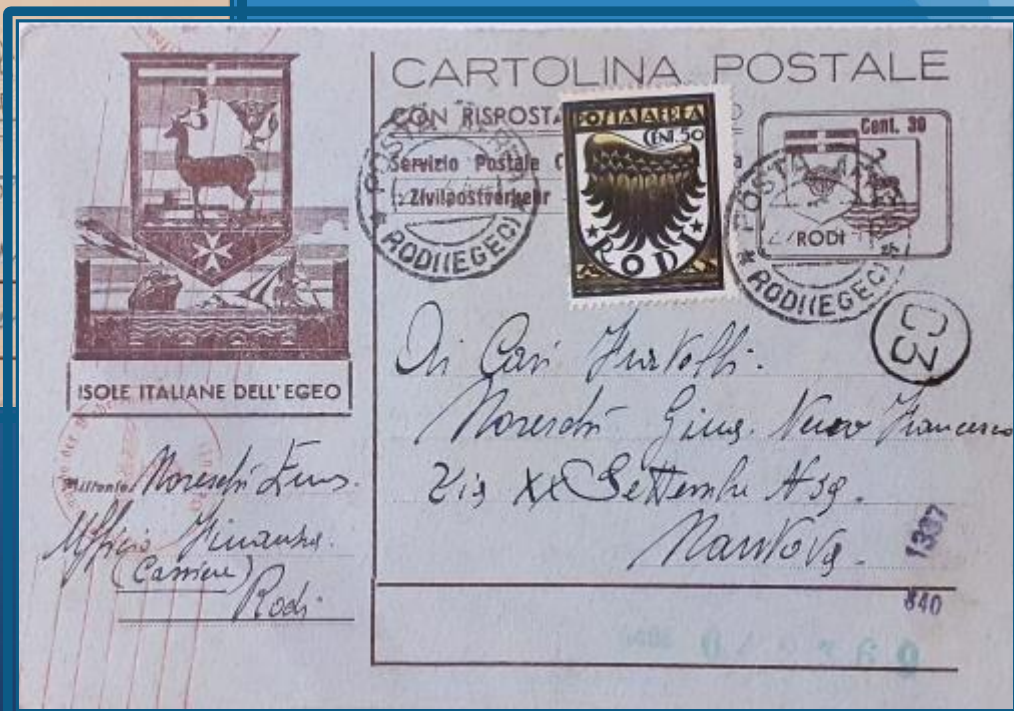 CARTOLINA POSTALE
CON RISPOSTA
Servizio Postale
Zivilpostverkehr
POSTA AEREA
CENT. 50
RODI
Cent. 30
RODI
RODI (EGEO)
RODI (EGEO)
C3
ISOLE ITALIANE DELL'EGEO
Mittente
Ufficio Finanza.
Rodi.
Ai Cari Fratelli.
Moreschi Francesco
Via XX Settembre
Mantova.
1337
840